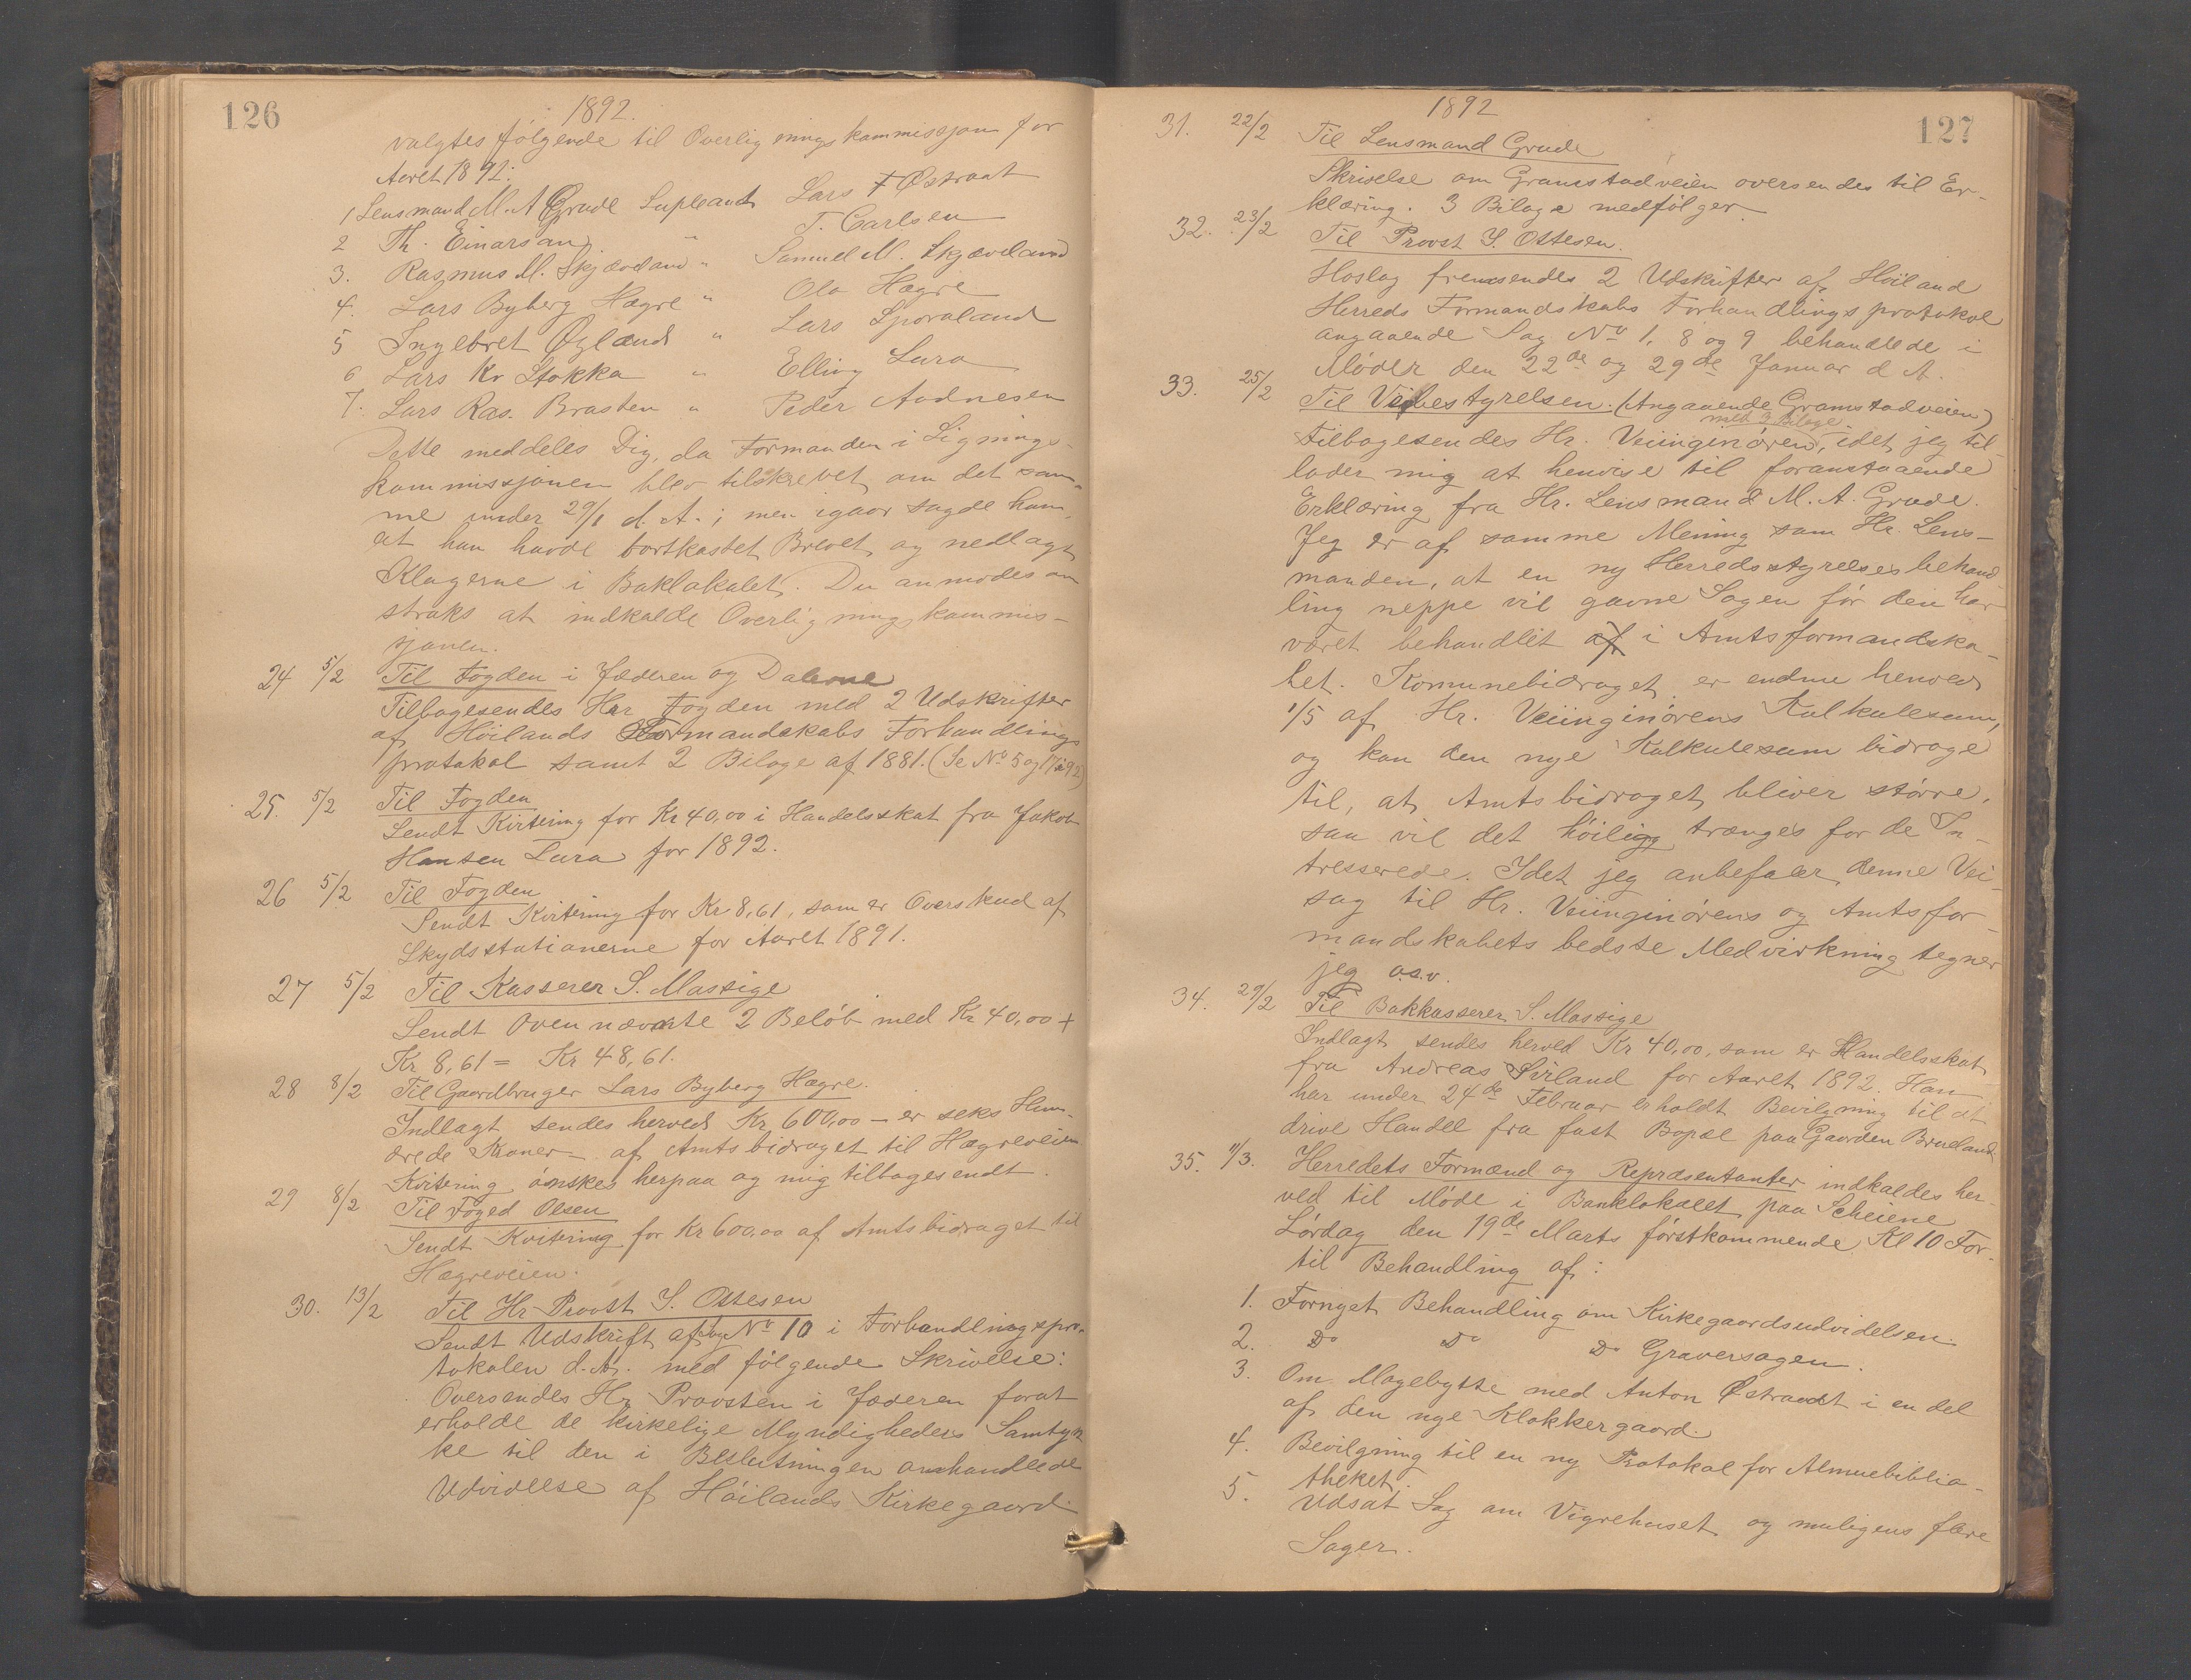 126
1892.
valgtes følgende til Overligningskommissjon for
Aaret 1892:
1 Lensmand M. A Grude Supleant Lars T Østraat
2 Th. Einarsen " T. Carlsen
3. Rasmus M. Skjæveland " Samuel M. Skjæveland
4. Lars Byberg Hægre " Ola Hægre
5 Ingebret Øgland " Lars Sporaland
6 Lars Kr Stokka " Elling Lura
7. Lars Ras. Brasten " Peder Aadnesen
Dette meddeles Dig, da Formanden i Lignings-
kommissjonen blev tilskrevet om det sam-
me under 29/1 d. A.; men igaar sagde han,
at han havde bortkastet Brevet og nedlagt
Klagerne i Baklokalet. Du anmodes om
straks at indkalde Overligningskommis-
sjonen.
24 5/2 Til Fogden i Jæderen og Dalerne
Tilbagesendes Hr Fogden med 2 Udskrifter
af Höilands Formandskabs Forhandlings
protokol samt 2 Bilage af 1881. (Se No 5 og 17/92)
25. 5/2 Til Fogden
Sendt Kvitering for Kr 40,00 i Handelsskat fra Jakob
Hansen Lura for 1892.
26 5/2 Til Fogden
Sendt Kvitering for Kr 8,61, som er Overskud af
Skydsstationerne for Aaret 1891.
27 5/2 Til Kasserer S. Massige
Sendt Ovennævnte 2 Belöb med Kr 40,00 +
Kr 8,61 = Kr 48,61.
28 8/2 Til Gaardbruger Lars Byberg Hægre.
Indlagt sendes herved Kr 600,00 – er seks Hun-
drede Kroner – af Amtsbidraget til Hægreveien
Kvitering önskes herpaa og mig tilbagesendt.
29 8/2 Til Foged Olsen
Sendt Kvitering for Kr 600,00 af Amtsbidraget til
Hægreveien.
30. 13/2 Til Hr Provst S. Ottesen
Sendt Udskrift af Sag No 10 i Forhandlingspro-
tokolen d. A. med følgende Skrivelse:
Oversendes Hr Provsten i Jæderen forat
erholde de kirkelige Myndigheders Samtyk
ke til den i Beslutningen omhandlede
Udvidelse af Höilands Kirkegaard.
127
1892
31. 22/2 Til Lensmand Grude
Skrivelse om Gramstadveien oversendes til Er-
klæring. 3 Bilage medfölger.
32. 23/2 Til Provst S. Ottesen.
Hoslag fremsendes 2 Udskrifter af Höiland
Herreds Formandskabs Forhandlingsprotokol
angaaende Sag No 1, 8 og 9 behandlede i
Möder den 22de og 29de Januar d A.
33. 25/2 Til Veibestyrelsen. (Angaaende Gramstadveien)
med 3 Bilage
Tilbagesendes Hr. Veiinginören, idet jeg til-
lader mig at henvise til foranstaaende
Erklæring fra Hr. Lensmand M. A. Grude.
Jeg er af samme Mening som Hr. Lens-
manden, at en ny Herredsstyrelsesbehand
ling neppe vil gavne Sagen för den har
været behandlet af i Amtsformandska-
bet. Komunebidraget er endnu henved
1/5 af Hr. Veiinginörens Kalkulesum,
og kan den nye Kalkulesum bidrage
til, at Amtsbidraget bliver större,
saa vil det höiligg trænges for de In-
tresserede. Idet jeg anbefaler denne Vei-
sag til Hr. Veiinginörens og Amtsfor-
mandskabets bedste Medvirkning tegner
jeg o.s.v.
34. 29/2 Til Bakkasserer S. Massige
Indlagt sendes herved Kr 40,00, som er Handelsskat
fra Andreas Sviland for Aaret 1892. Han
har under 24de Februar erholdt Bevilgning til at
drive Handel fra fast Bopæl paa Gaarden Brueland
35. 11/3. Herredets Formænd og Repræsentanter indkaldes her-
ved til Möde i Banklokalet paa Scheiene
Lördag den 19de Marts förstkommende Kl 10 For-
til Behandling af:
1. Fornyet Behandling om Kirkegaardsudvidelsen.
2. Do Do Do Graversagen.
3. Om Magebytte med Anton Østraadt i en del
af den nye Klokkergaard.
4. Bevilgning til en ny Protokol for Almuebiblio-
theket.
5. Udsat Sag om Vigrehuset og muligens flere
Sager.